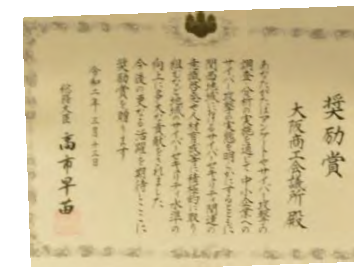 奨励賞
大阪商工会議所 殿
あなたがたはアンケートやサイバー攻撃の
調査、分析の実施を通して中小企業への
サイバー攻撃の実態を明らかにするとともに
関西地域におけるサイバーセキュリティ関連の
意識啓発や人材育成等に積極的に取り
組むなど地域のサイバーセキュリティ水準の
向上に多大な貢献をされました
今後の更なる活躍を期待しここに
奨励賞を贈ります
令和二年三月十二日
総務大臣 高市早苗